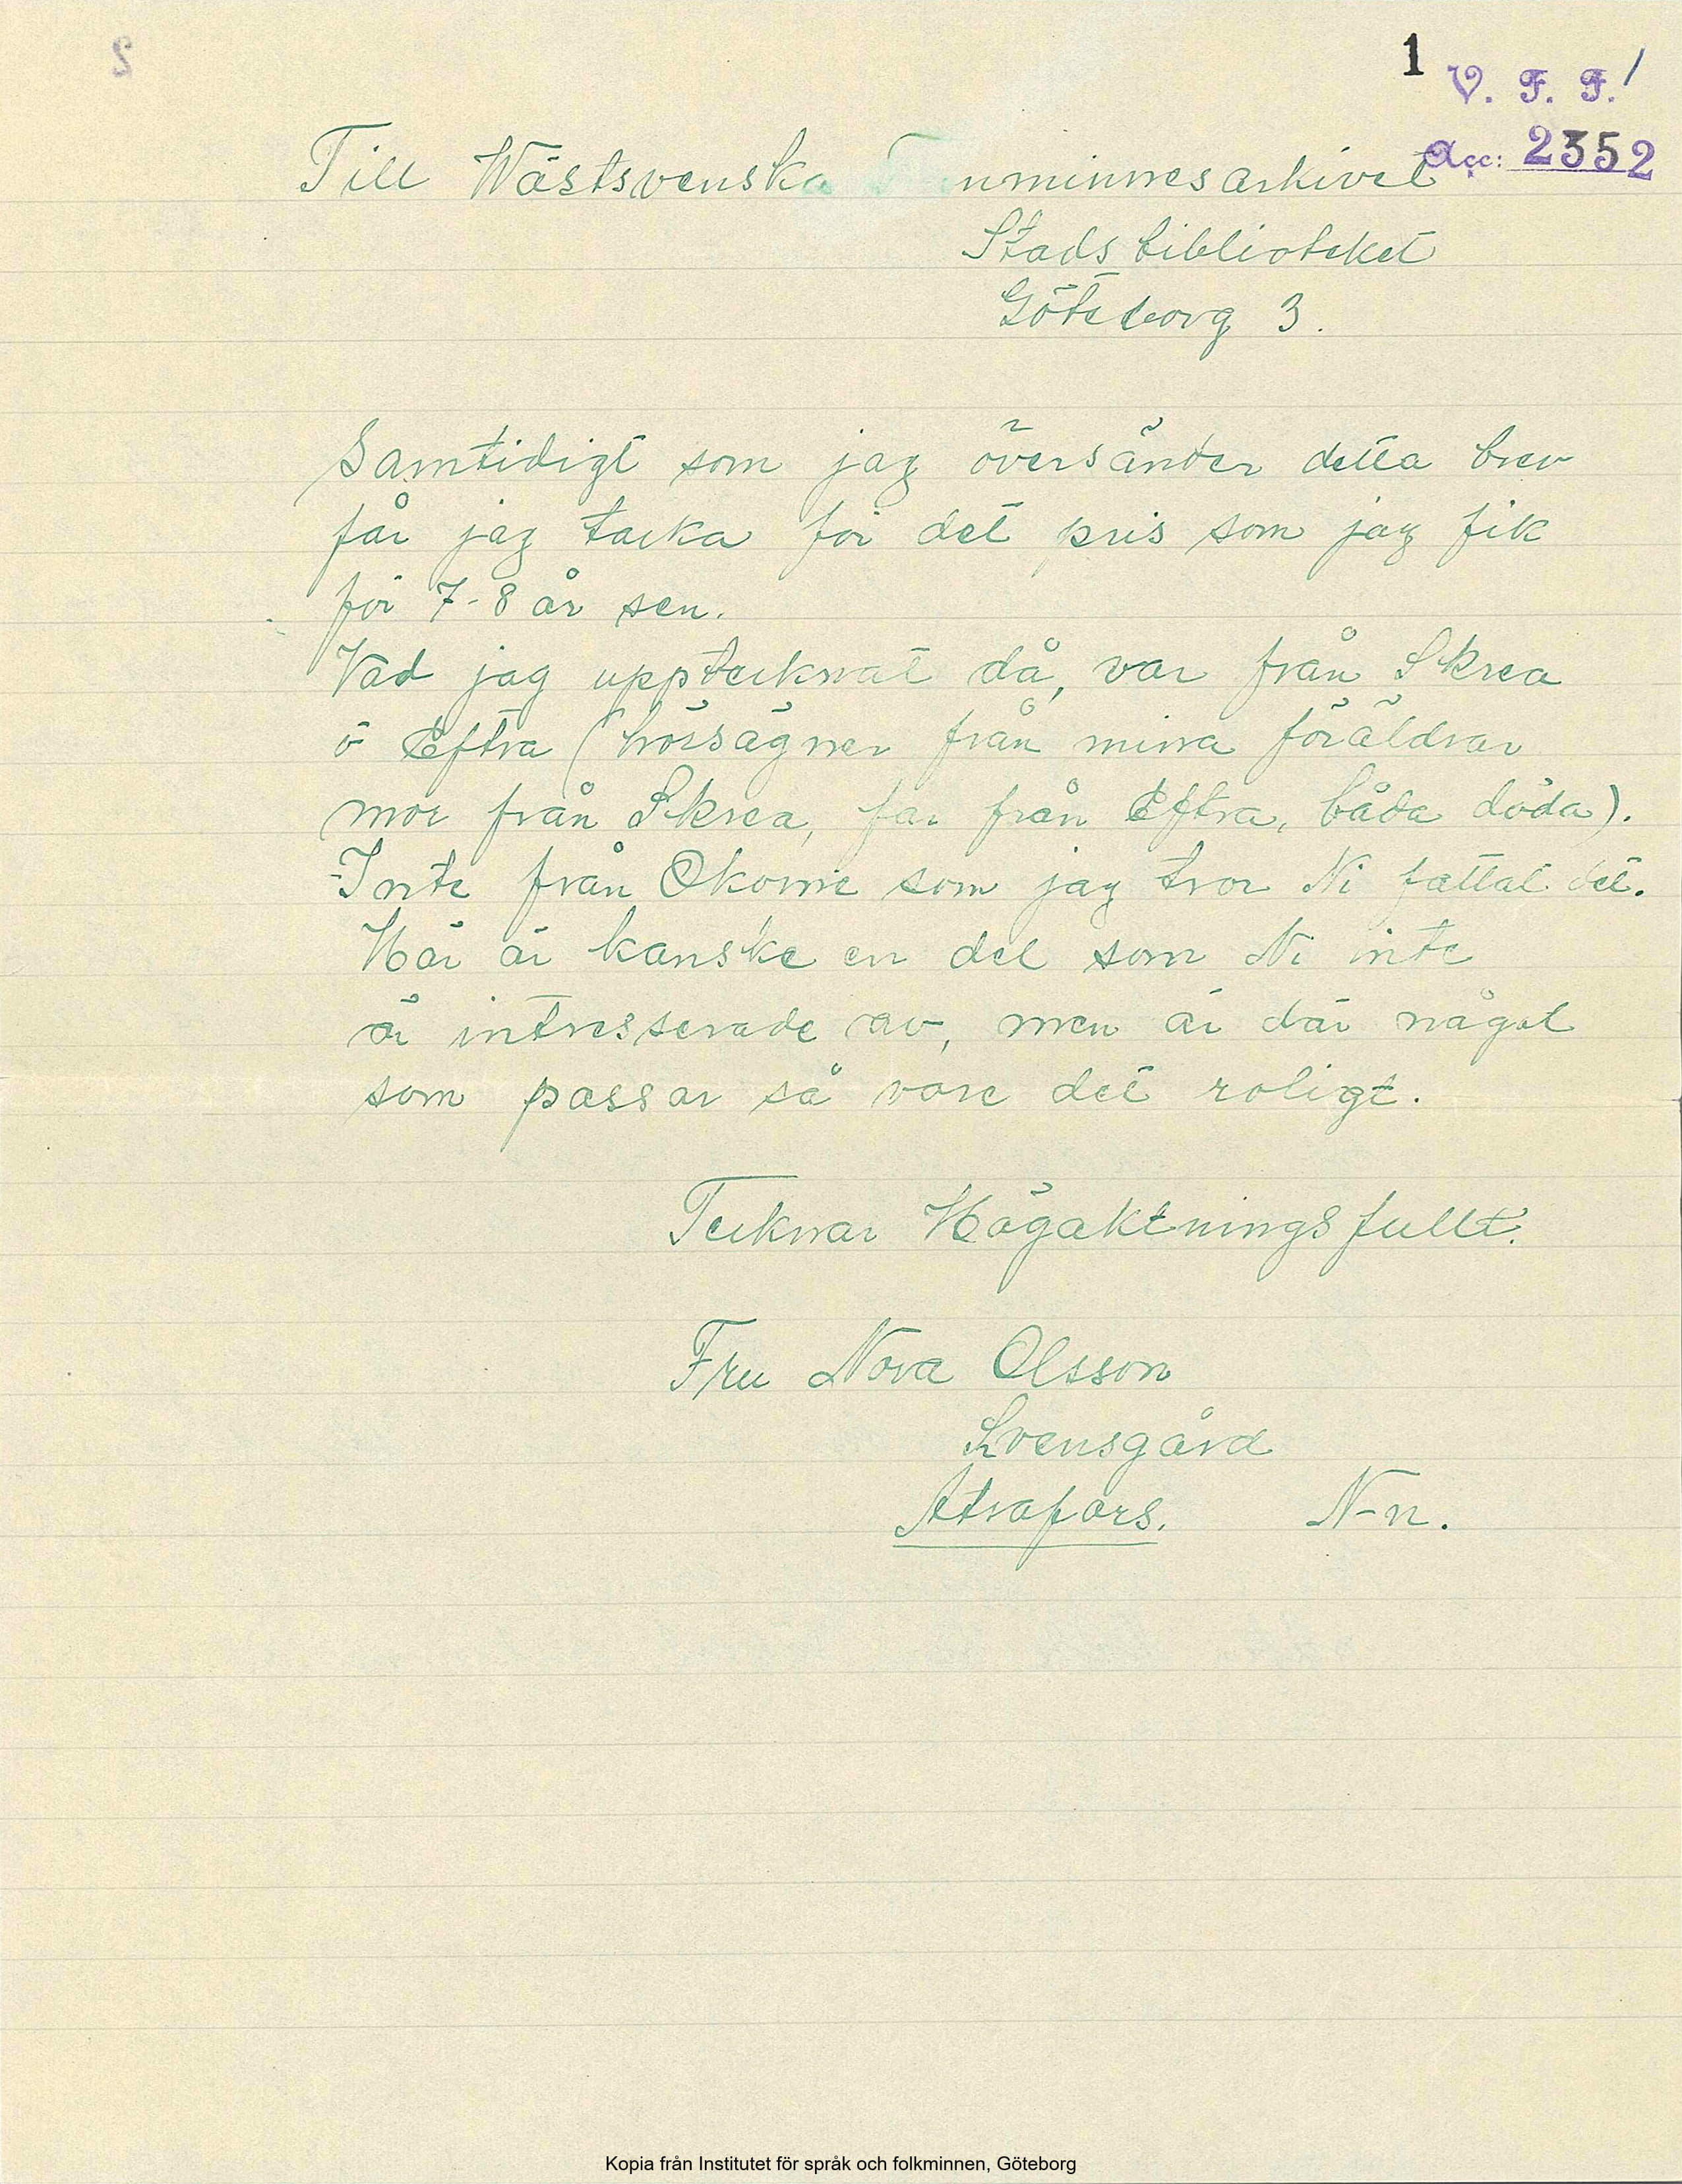 1
V. F. F. /
Acc: 2352
Till Wästsvenska nminnesarkivet
Stadsbiblioteket
Göteborg 3.
Samtidigt som jag översänder detta brev
får jag tacka för det pris som jag fik
för 7-8 år sen.
Vad jag upptecknat då, var från Skrea
o Eftra (hörsägner från mina föräldrar
mor från Skrea, far från Eftra, båda döda).
Inte från Okome som jag tror Ni fattat det.
Här är kanske en del som Ni inte
är intresserade av, men är där något
som passar så vore det roligt.
Tecknar Högaktningsfullt.
Fru Nora Olsson
Svensgård
Ätrafors. N-n.
Kopia från Institutet för språk och folkminnen, Göteborg